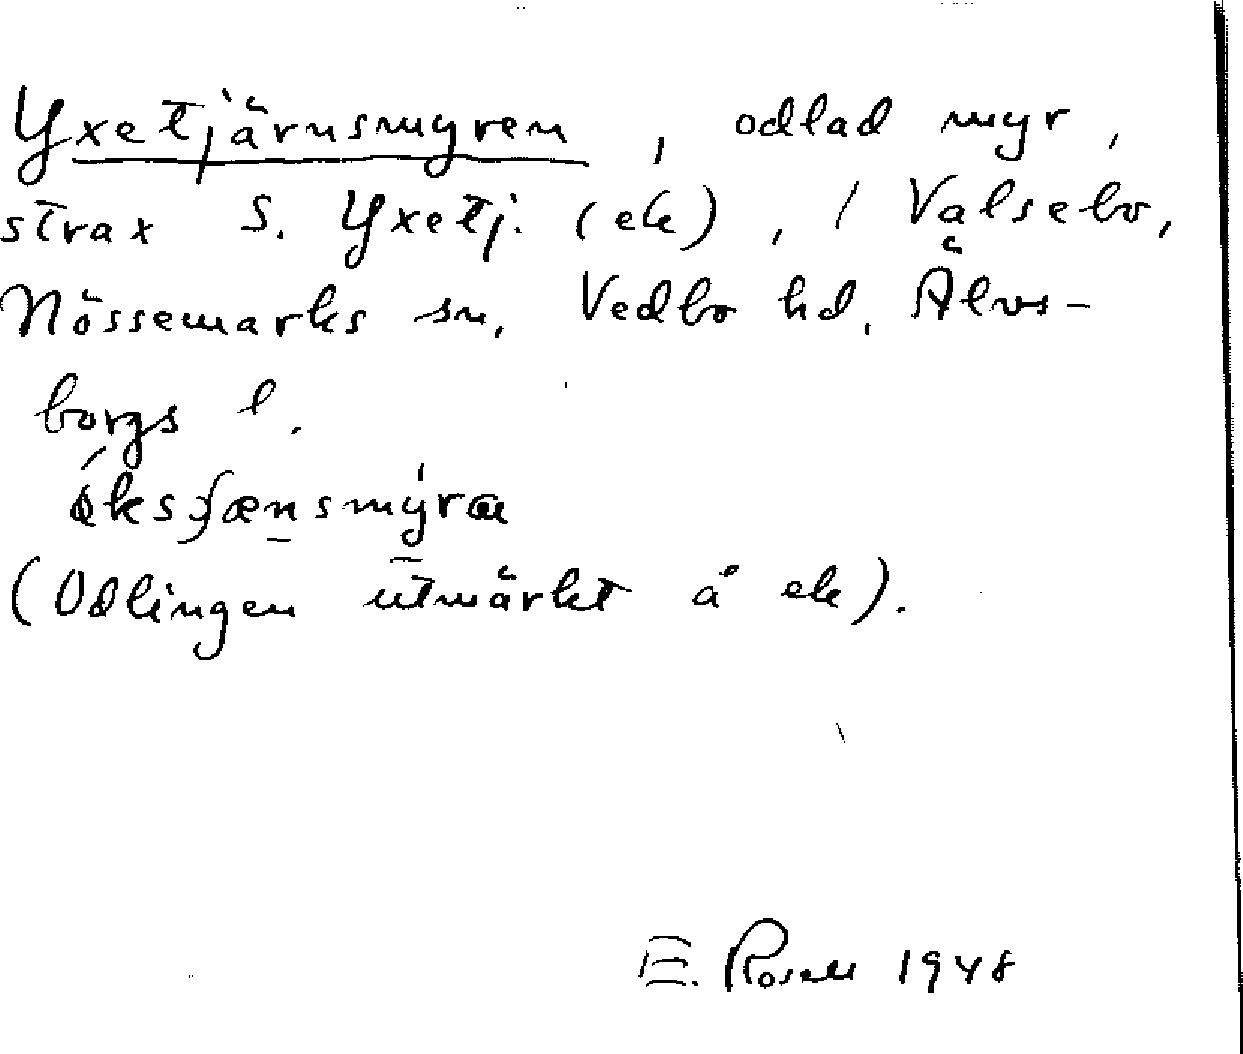 Yxetjärnsmyren, odlad myr,
strax S. Yxetj. (ek), i Valsebo,
Nössemarks sn, Vedbo hd, Älvs-
borgs l.
(Odlingen utmärkt å ek).
E. Rosell 1948